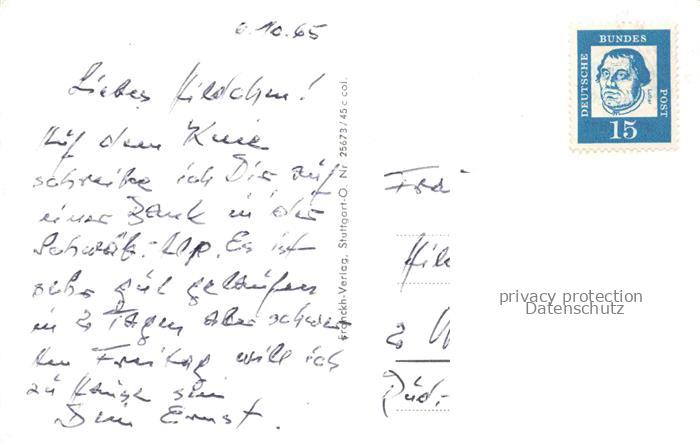 6.10.65
Liebes Hildchen!
Auf dem Knie
schreibe ich Dir auf
einer Bank in der
Schwäb. Alp. Es ist
sehr gut gelaufen
in 2 Tagen aber schwer
Am Freitag will ich
zu Hause sein
Dein Ernst.
Franckh-Verlag, Stuttgart-O. Nr 25673/45c col.
DEUTSCHE
BUNDES
POST
Luther
15
Frä
Hil
2
Düd.
privacy protection
Datenschutz